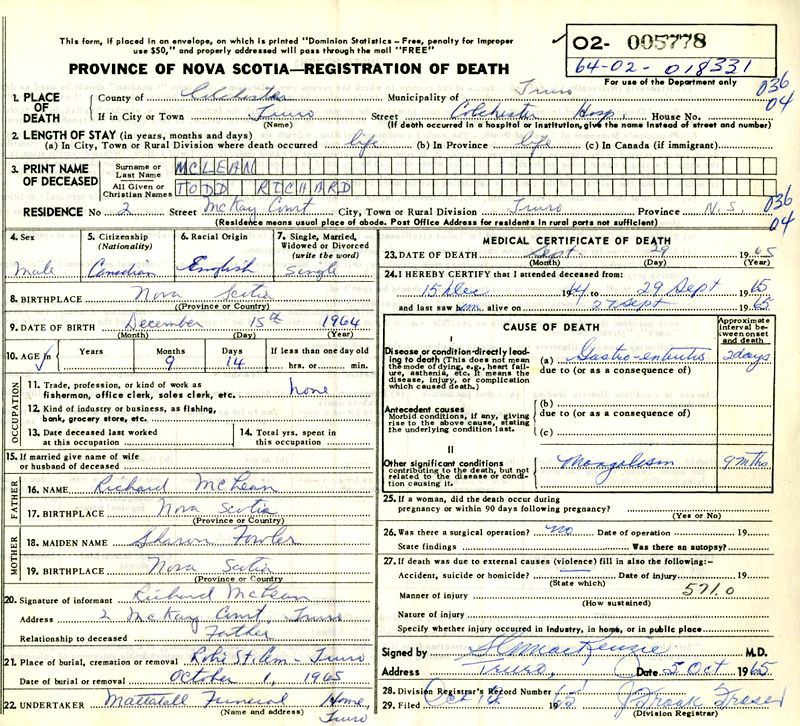 This form, if placed in an envelope, on which is printed "Dominion Statistics – Free, penalty for improper
use $50," and properly addressed will pass through the mail "FREE"
✓ 02- 005778
64-02-018331
For use of the Department only
PROVINCE OF NOVA SCOTIA—REGISTRATION OF DEATH
036
04
1. PLACE OF DEATH County of Colchester Municipality of Truro
If in City or Town Truro Street Colchester Hosp. House No.
(Name) (If death occurred in a hospital or institution, give the name instead of street and number)
2. LENGTH OF STAY (in years, months and days)
(a) In City, Town or Rural Division where death occurred life (b) In Province life (c) In Canada (if immigrant)
3. PRINT NAME OF DECEASED Surname or Last Name MCLEAN
All Given or Christian Names TODD RICHARD
036
04
RESIDENCE No 2 Street McKay Court City, Town or Rural Division Truro Province N.S.
(Residence means usual place of abode. Post Office Address for residents in rural parts not sufficient)
4. Sex 5. Citizenship (Nationality) 6. Racial Origin 7. Single, Married, Widowed or Divorced (write the word)
Male Canadian English Single
8. BIRTHPLACE Nova Scotia
(Province or Country)
9. DATE OF BIRTH December 15th 1964
(Month) (Day) (Year)
10. AGE in ✓ Years Months Days If less than one day old
9 14 hrs. or min.
OCCUPATION
11. Trade, profession, or kind of work as
fisherman, office clerk, sales clerk, etc. none
12. Kind of industry or business, as fishing,
bank, grocery store, etc.
13. Date deceased last worked
at this occupation
14. Total yrs. spent in
this occupation
15. If married give name of wife
or husband of deceased
FATHER
16. NAME Richard McLean
17. BIRTHPLACE Nova Scotia
(Province or Country)
MOTHER
18. MAIDEN NAME Sharon Fowler
19. BIRTHPLACE Nova Scotia
(Province or Country)
20. Signature of informant Richard McLean
Address 2 McKay Court, Truro
Relationship to deceased Father
21. Place of burial, cremation or removal Robie St. Cem - Truro
Date of burial or removal October 1, 1965
22. UNDERTAKER Mattatall Funeral Home
(Name and address) Truro
MEDICAL CERTIFICATE OF DEATH
23. DATE OF DEATH Sept 29 1965
(Month) (Day) (Year)
24. I HEREBY CERTIFY that I attended deceased from:
15 Dec 1964 to 29 Sept 1965
and last saw him alive on 27 Sept 1965
CAUSE OF DEATH Approximate interval between onset and death
I
Disease or condition directly lead-
ing to death (This does not mean
the mode of dying, e.g., heart fail-
ure, asthenia, etc. It means the
disease, injury, or complication
which caused death.)
(a) Gastro-enteritis 2 days
due to (or as a consequence of)
Antecedent causes
Morbid conditions, if any, giving
rise to the above cause, stating
the underlying condition last.
(b)
due to (or as a consequence of)
(c)
II
Other significant conditions
contributing to the death, but not
related to the disease or condi-
tion causing it.
Mongolism 9 mths
25. If a woman, did the death occur during
pregnancy or within 90 days following pregnancy?
(Yes or No)
26. Was there a surgical operation? no Date of operation 19
State findings Was there an autopsy?
27. If death was due to external causes (violence) fill in also the following:–
Accident, suicide or homicide? Date of injury 19
(State which)
Manner of injury 571.0
(How sustained)
Nature of injury
Specify whether injury occurred in industry, in home, or in public place
Signed by MacKenzie M.D.
Address Truro, Date 5 Oct 1965
28. Division Registrar's Record Number
29. Filed Oct 1965 Frank Fraser
(Division Registrar)